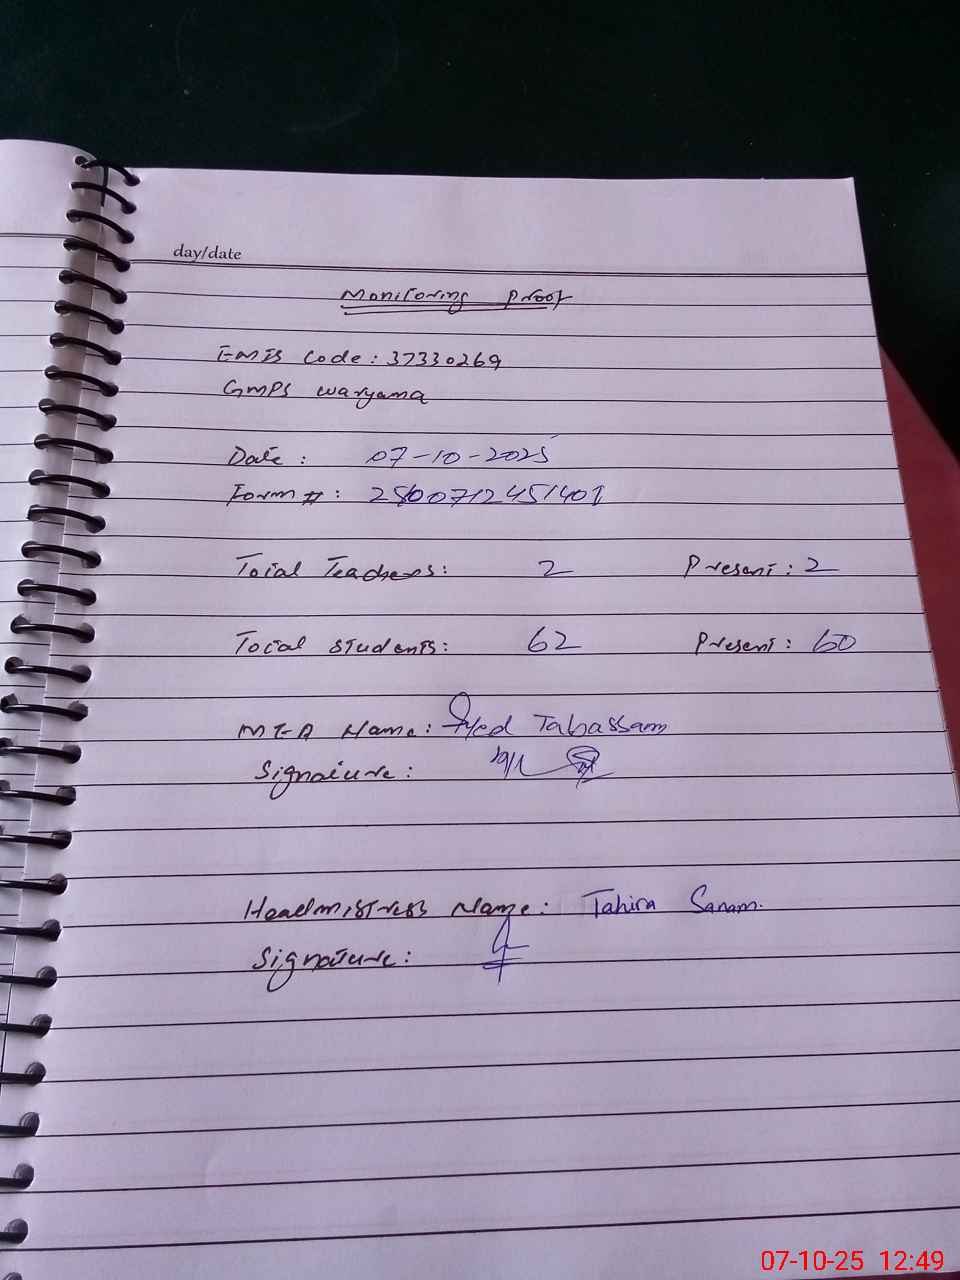 day/date
Monitoring Proof
EMIS Code: 37330269
GMPS Waryama
Date: 07-10-2025
Form #:
Total Teachers: 2 Present: 2
Total Students: 62 Present: 60
MEA Name: Syed Tabassam
Signature:
Headmistress Name: Tahira Sanam.
Signature:
07-10-25 12:49